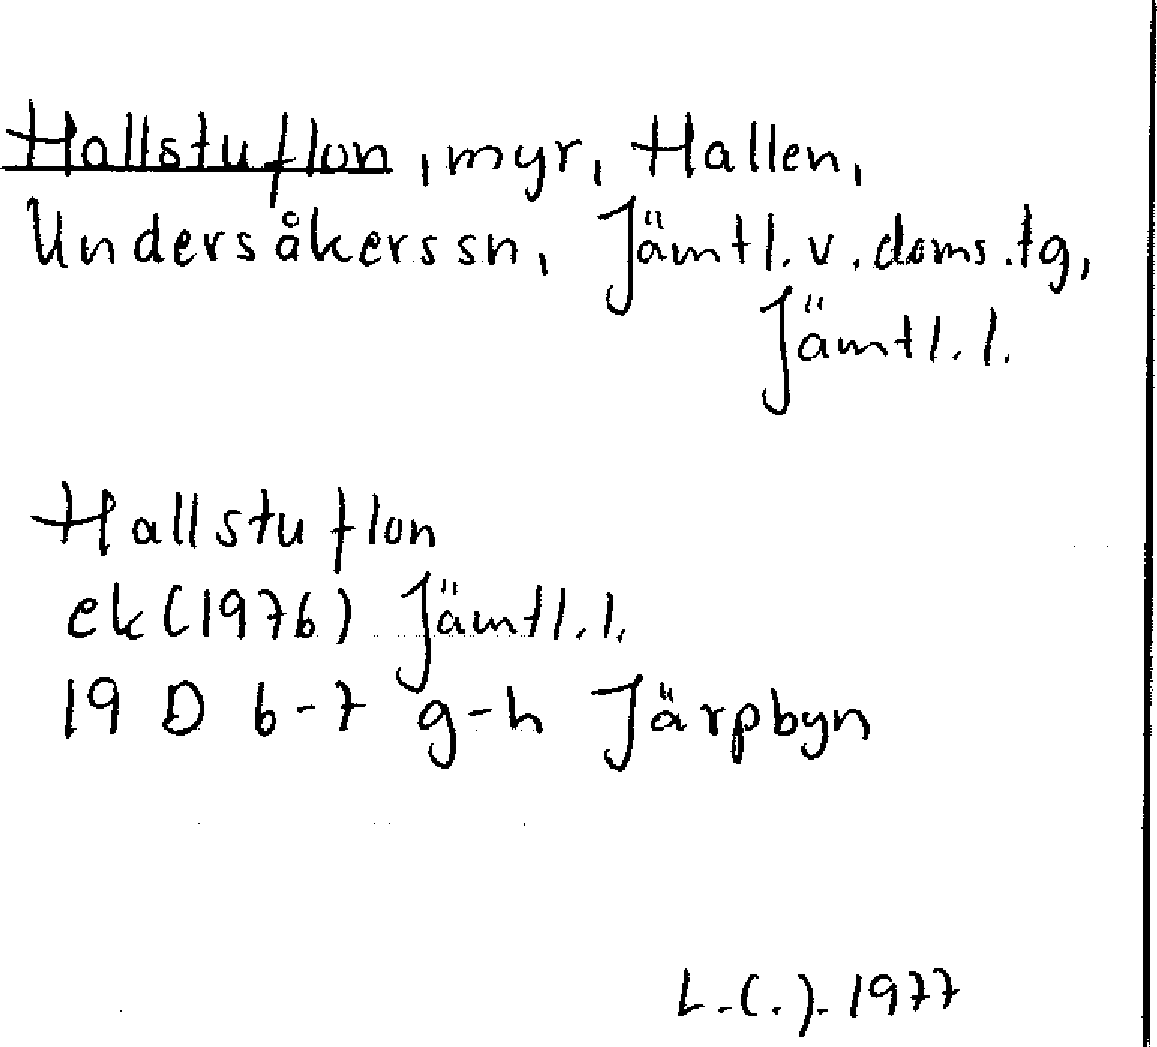 Hallstuflon, myr, Hallen,
Undersåkers sn, Jämtl. v. doms.tg,
Jämtl. l.
Hallstuflon
ek (1976) Jämtl. l.
19 D 6-7 g-h Järpbyn
L.(.). 1977